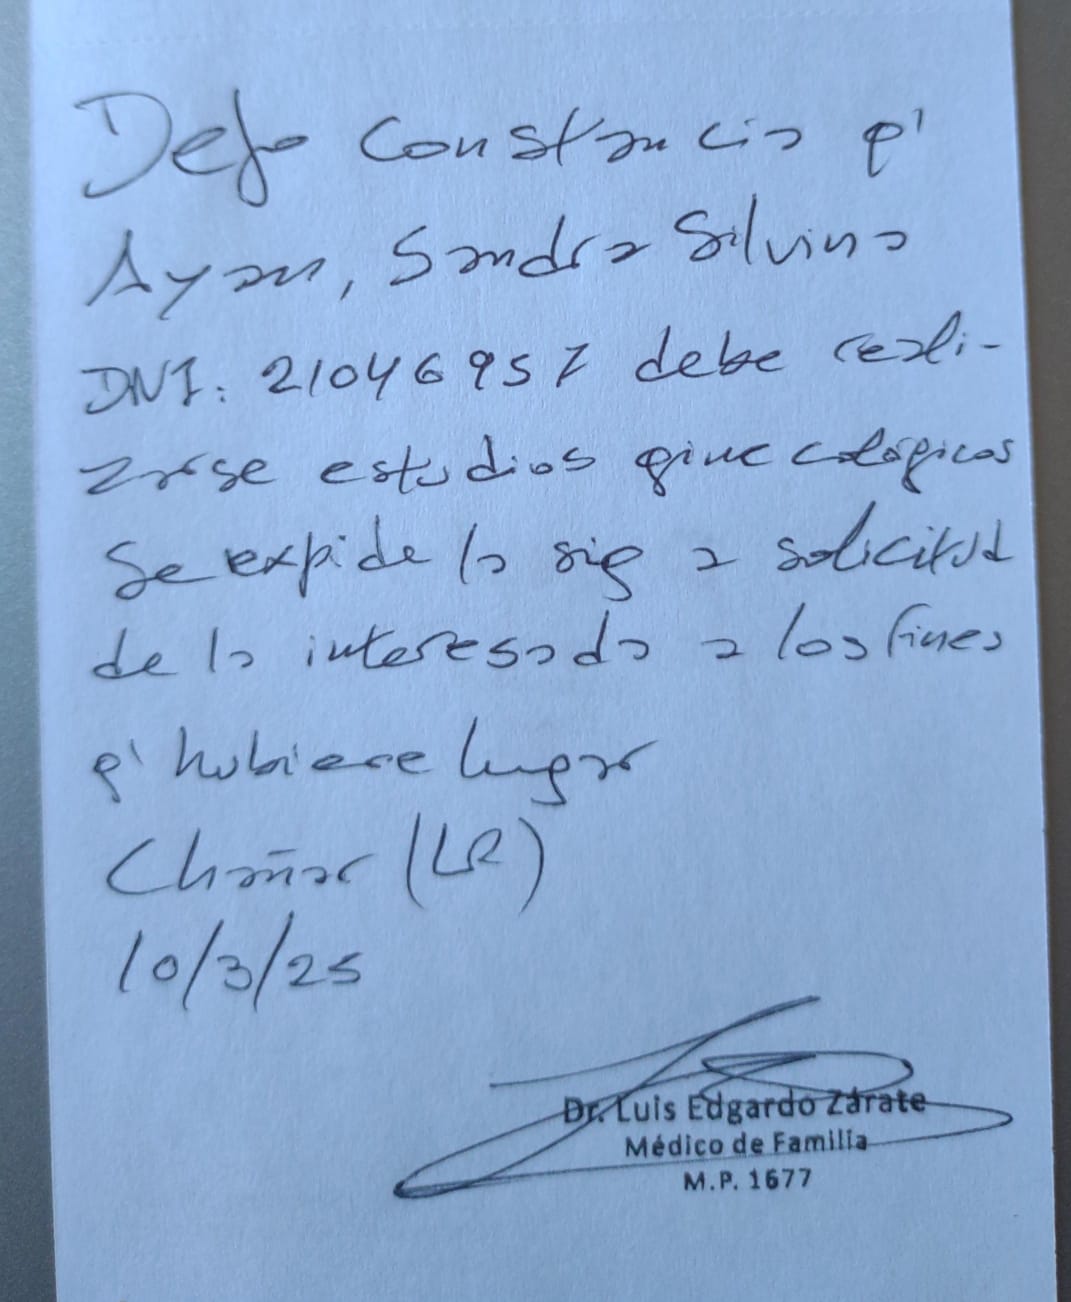 Dejo constancia q'
Ayan, Sandra Silvina
DNI: 21046957 debe reali-
zarse estudios ginecológicos
Se expide la sig a solicitud
de la interesada a los fines
q' hubiere lugar
Chañar (LR)
10/3/25
Dr. Luis Edgardo Zárate
Médico de Familia
M.P. 1677